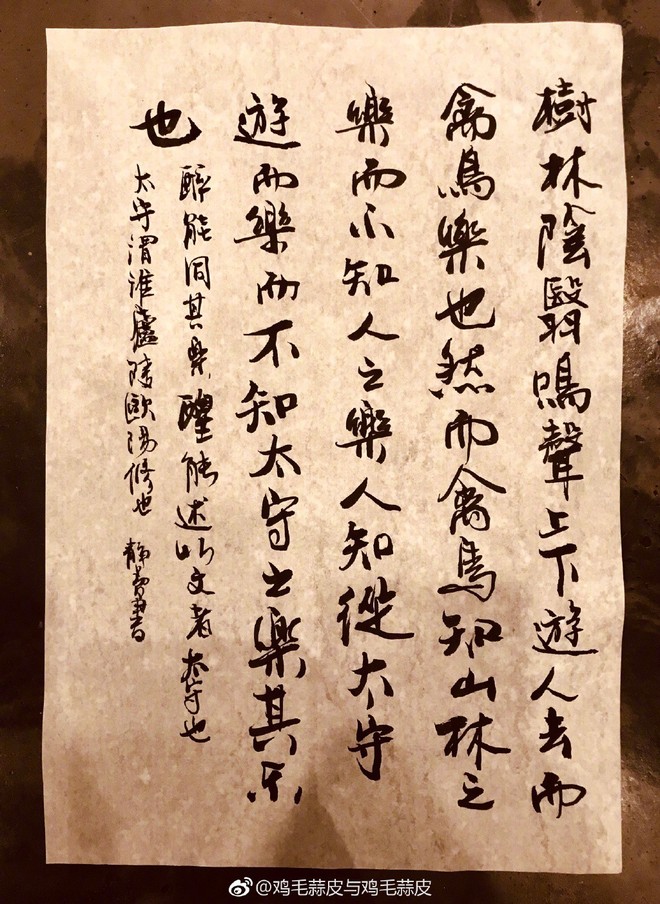 樹林陰翳鳴聲上下遊人去而
禽鳥樂也然而禽鳥知山林之
樂而不知人之樂人知從太守
遊而樂而不知太守之樂其乐
也
醉能同其樂醒能述以文者太守也
太守謂誰廬陵歐陽修也 静書
@鸡毛蒜皮与鸡毛蒜皮